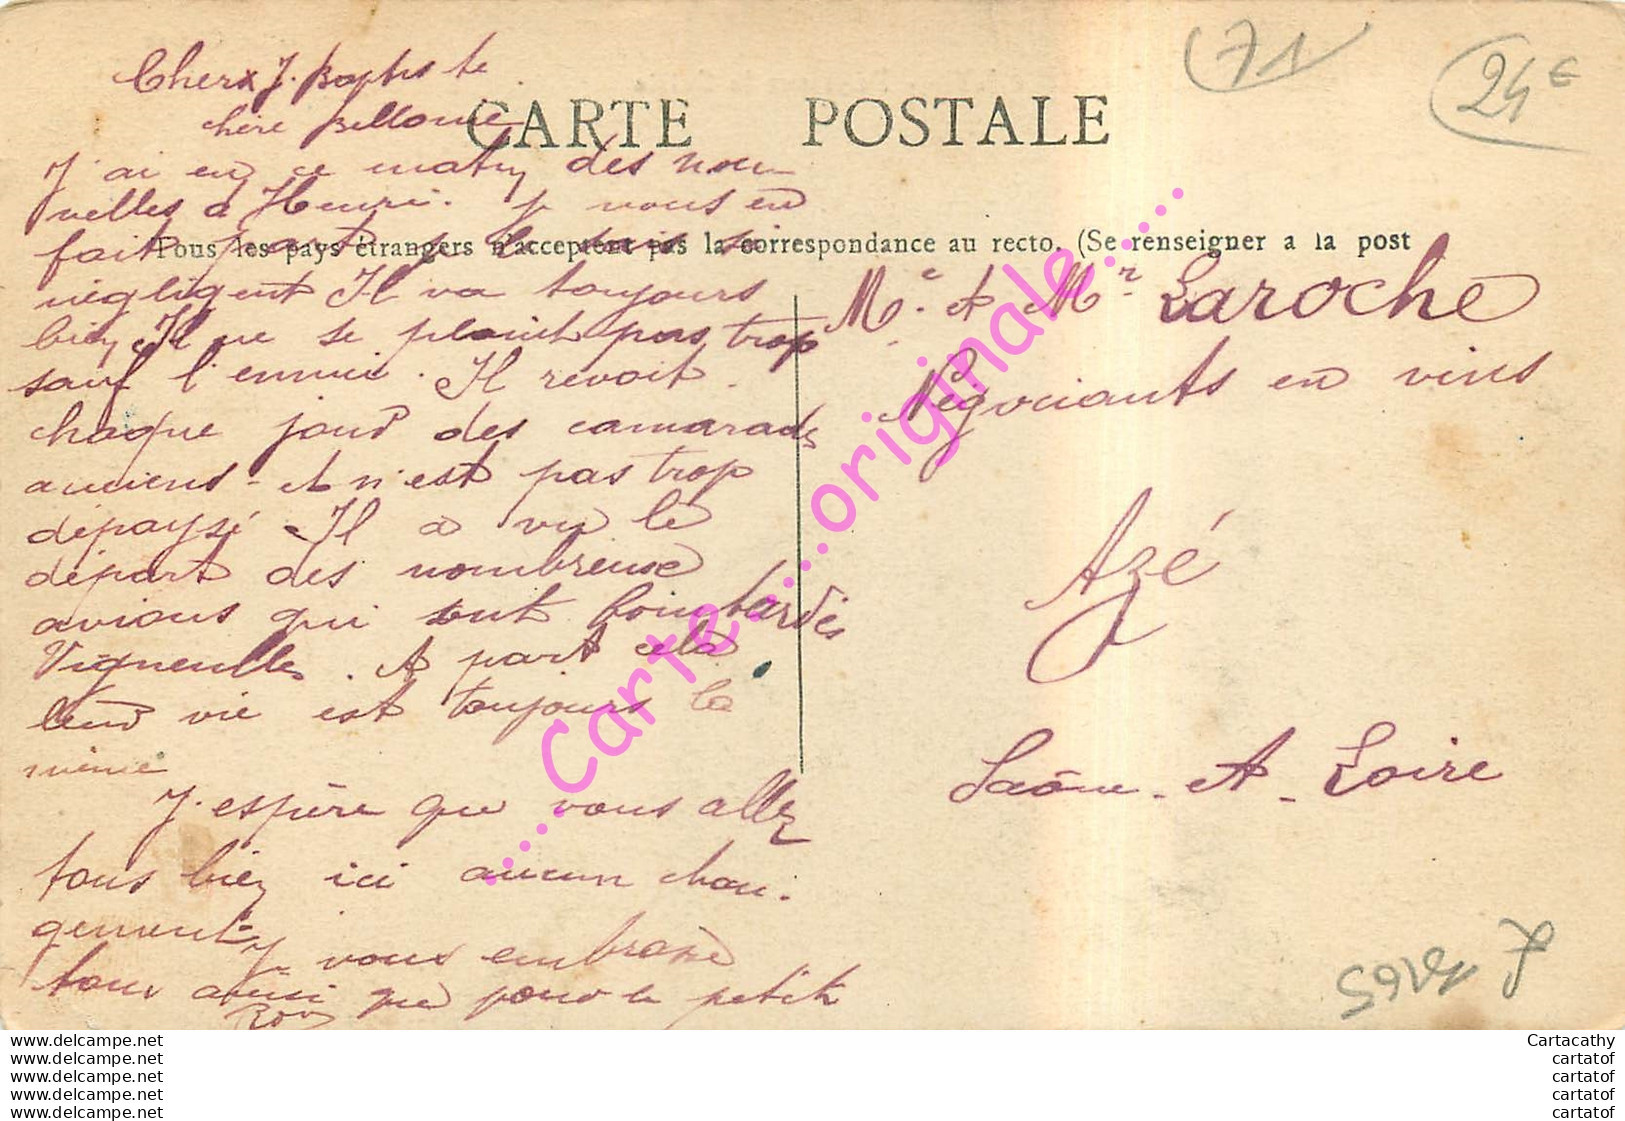 71
24€
Cher J. Baptiste
chère Bellonie
CARTE POSTALE
J'ai eu ce matin des nou-
velles d Henri. Je vous en
fait part je le sais si
négligent Il va toujours
bien Il ne se plaint pas trop
sauf l'ennui. Il revoit
chaque jour des camarades
anciens et n'est pas trop
dépaysé Il a vu le
départ des nombreuse
avions qui ont bombardés
Vigneulles. A part cela
leur vie est toujours la
même
J'espère que vous allez
tous bien ici aucun chan-
gement. Je vous embrasse
tous ainsi que pour le petit
Tous les pays étrangers n'acceptent pas la correspondance au recto. (Se renseigner a la post
Me et Mr Laroche
Négociants en vins
Azé
Saône-et-Loire
.....Carte.....originale.....
Cartacathy
cartatof
cartatof
cartatof
cartatof
www.delcampe.net
www.delcampe.net
www.delcampe.net
www.delcampe.net
www.delcampe.net